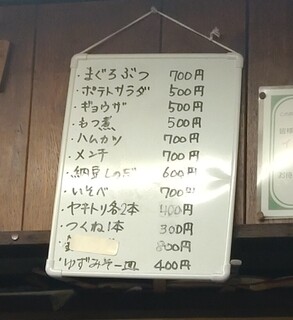 ・まぐろぶつ 700円
・ポテトサラダ 500円
・ギョウザ 500円
・もつ煮 500円
・ハムカツ 700円
・メンチ 700円
・納豆しのだ 600円
・いそべ 700円
・ヤキトリ各2本 400円
・つくね1本 300円
800円
・ゆずみそ一皿 400円